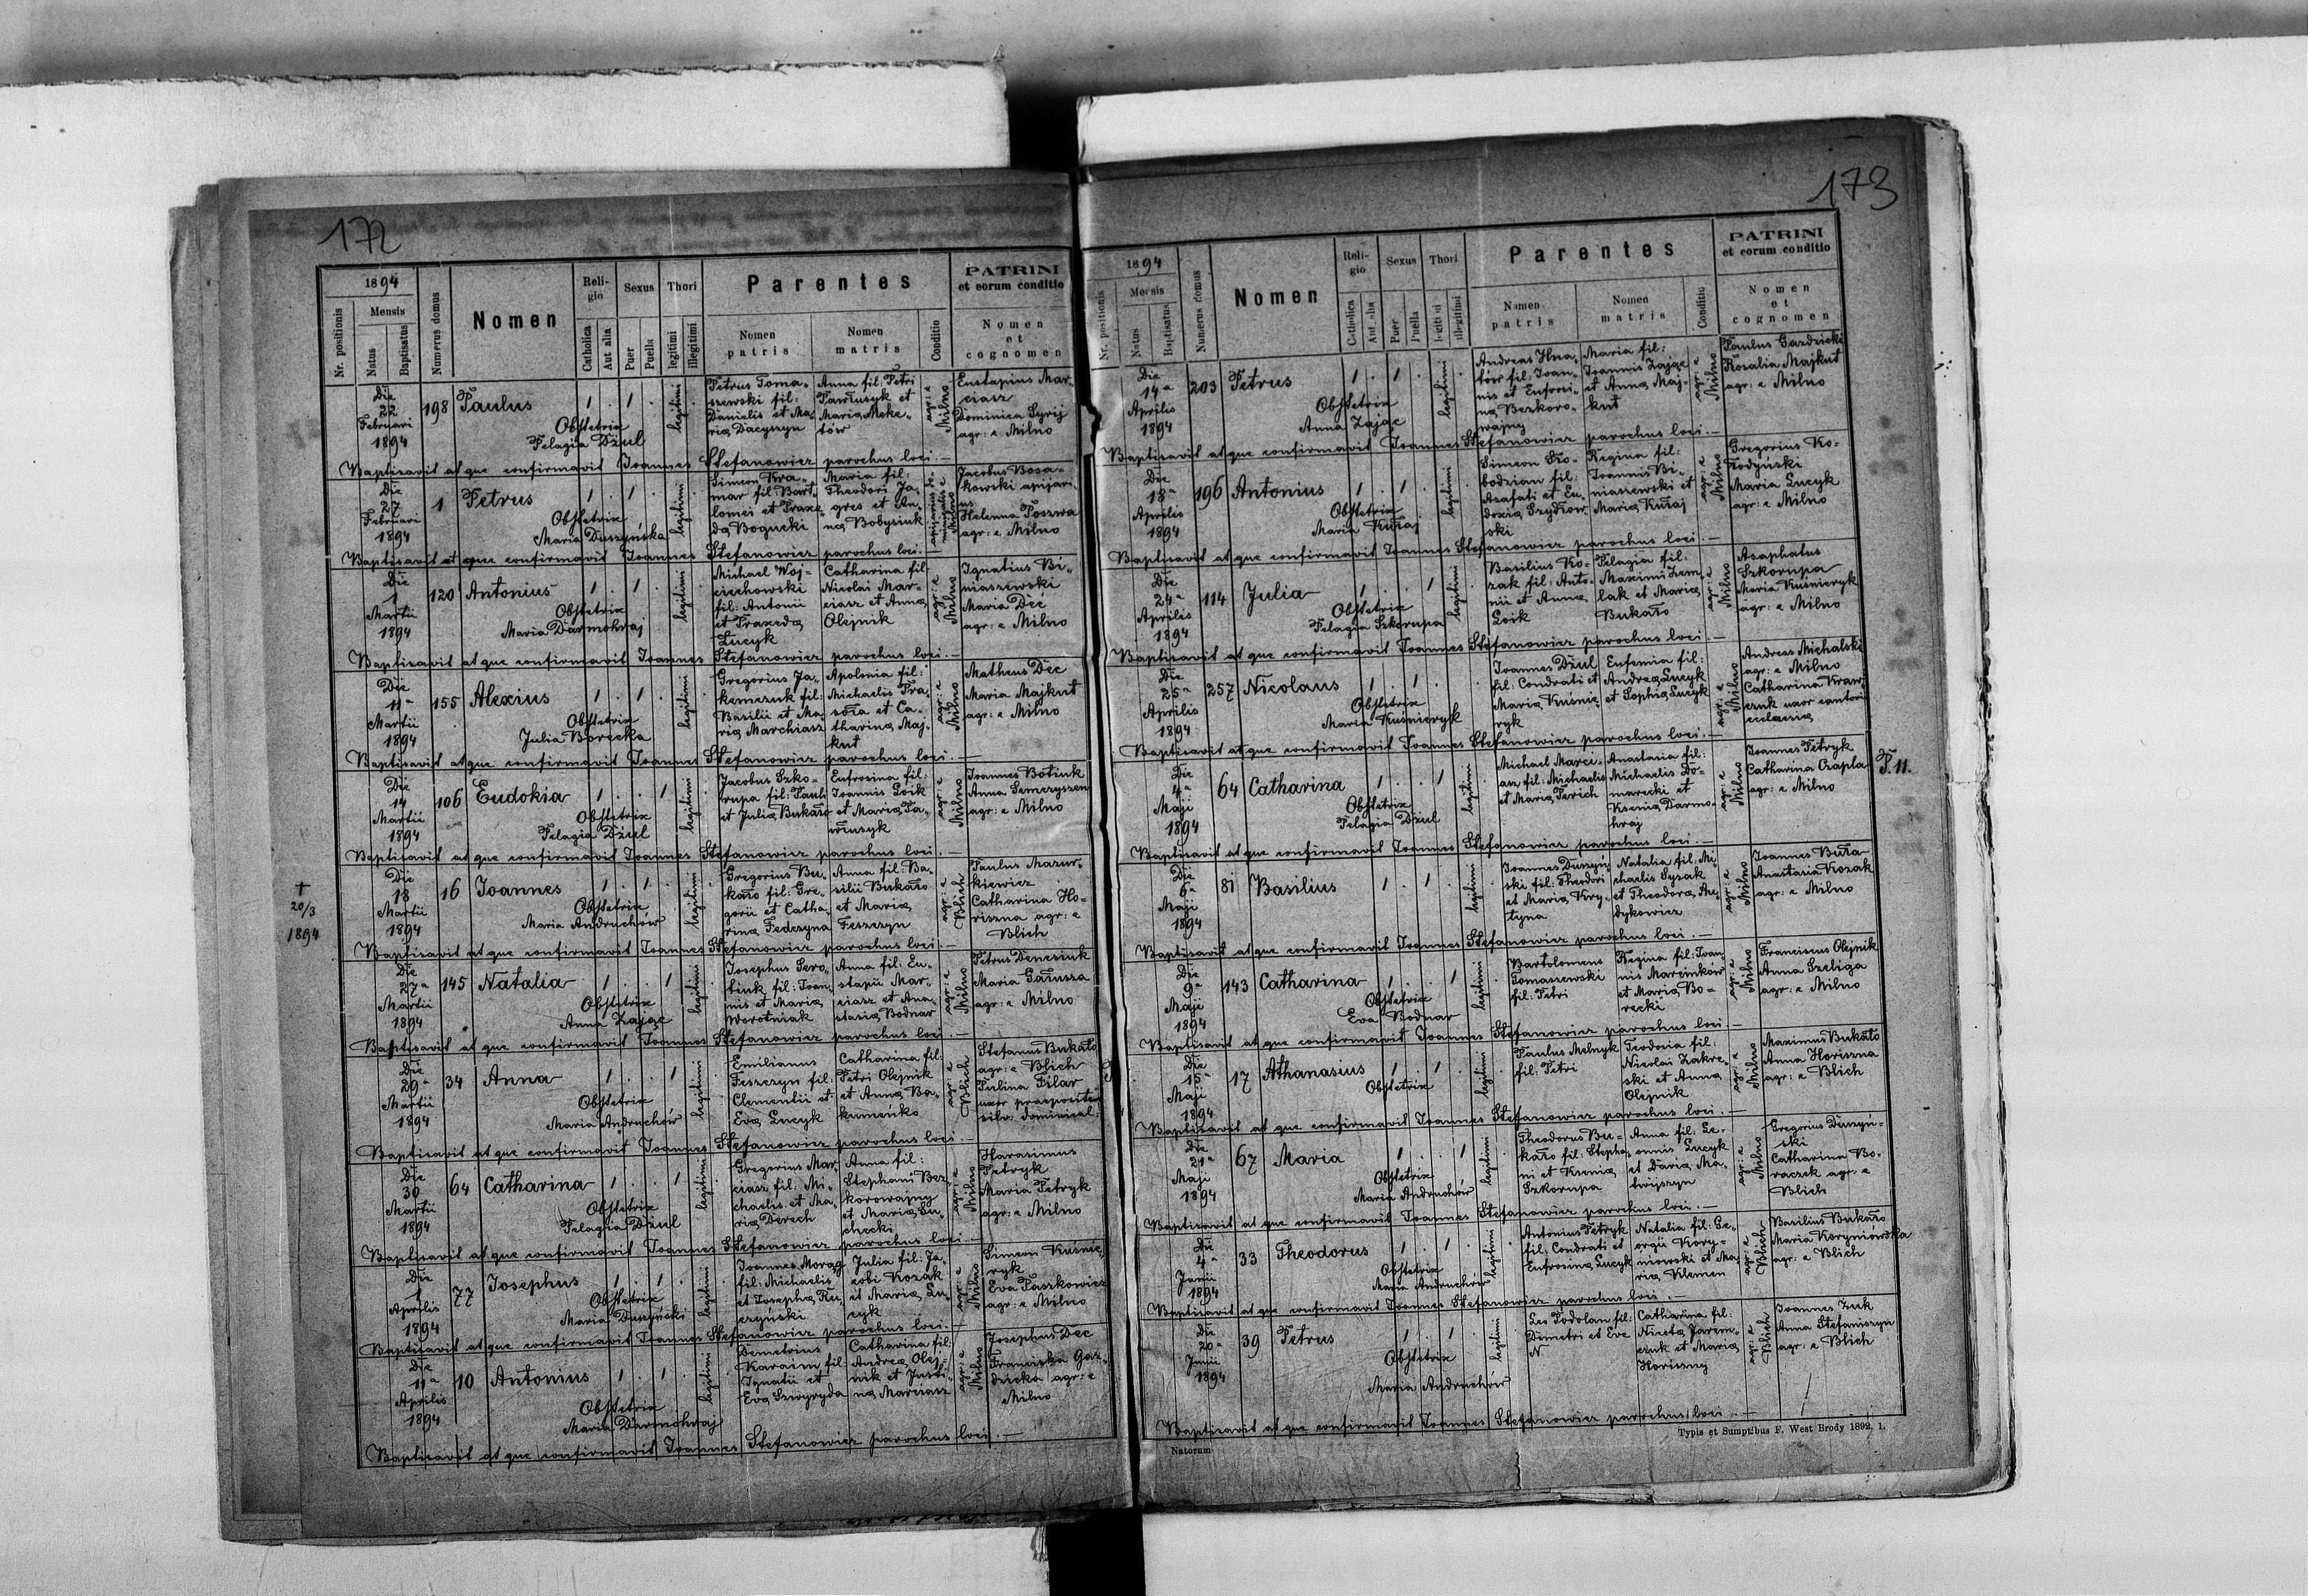 172
1894
Nr. positionis
Mensis
Natus
Baptisatus
Numerus domus
Nomen
Religio
Catholica
Aut alia
Sexus
Puer
Puella
Thori
legitimi
illegitimi
Parentes
Nomen patris
Nomen matris
Conditio
PATRINI
et eorum conditio
Nomen
et
cognomen
Die 22 Februari 1894
198
Paulus
1 . 1 .
legitimi
Obstetrix
Pelagia Dżul
Petrus Toma-
szewski fil:
Danielis et Ma-
ria Dacyszyn
Anna fil: Petri
Pawlusyk et
Maria Meke-
tów
agr: e Milno
Eustapius Mar-
ciasz
Dominica Syrij
agr: e Milno
Baptisavit atque confirmavit Joannes Stefanowicz parochus loci. —
Die 27 Februari 1894
1
Petrus
1 . 1 .
legitimi
Obstetrix
Maria Duszyńska
Simeon Kra-
mar fil: Bart-
lomei et Praxe-
da Bogucki
Maria fil:
Theodori Ja-
gres et An-
na Bobysiuk
Jacobus Bosa-
kowski apijari-
us
Helenna Poszwa
agr: e Milno
Baptisavit atque confirmavit Joannes Stefanowicz parochus loci. —
Die 1 Martii 1894
120
Antonius
1 . 1 .
legitimi
Obstetrix
Maria Darmohraj
Michael Woj-
ciechowski
fil: Antonii
et Praxeda
Lucyk
Catharina fil:
Nicolai Mar-
ciasz et Anna
Olejnik
agr: e Milno
Ignatius Bi-
niaszewski
Maria Deć
agr: e Milno
Baptisavit atque confirmavit Joannes Stefanowicz parochus loci. —
Die 11a Martii 1894
155
Alexius
1 . 1 .
legitimi
Obstetrix
Julia Borecka
Gregorius Ja-
kemczuk fil:
Basilii et Ma-
ria Marchiasz
Apolonia fil:
Michaelis Pra-
sola et Ca-
tharina Maj-
kut
agr: e Milno
Matheus Dec
Maria Majkut
agr: e Milno
Baptisavit atque confirmavit Joannes Stefanowicz parochus loci. —
Die 14 Martii 1894
106
Eudokia
1 . . 1
legitimi
Obstetrix
Pelagia Dżul
Jacobus Szko-
rupa fil: Pauli
et Julia Bukało
Eufrosina fil:
Joannis Loik
et Maria Pa-
wlusyk
agr: e Milno
Joannes Botiuk
Anna Semczyszen
agr: e Milno
Baptisavit atque confirmavit Joannes Stefanowicz parochus loci. —
† 20/3 1894
Die 18 Martii 1894
16
Joannes
1 . 1 .
legitimi
Obstetrix
Maria Andruchów
Gregorius Bu-
kało fil: Gre-
gorii et Catha-
rina Fedczyna
Anna fil: Ba-
silii Bukało
et Maria
Feszczyn
agr: e Blich
Paulus Mazur-
kiewicz
Catharina Ho-
riszna agr: e
Blich
Baptisavit atque confirmavit Joannes Stefanowicz parochus loci. —
Die 27a Martii 1894
145
Natalia
1 . . 1
legitimi
Obstetrix
Anna Zając
Josephus Sero-
tiuk fil: Joan-
nis et Maria
Worotniak
Anna fil: Eu-
stapii Mar-
ciasz et Ana-
stasia Bodnar
agr: e Milno
Petrus Denesiuk
Maria Gałussa
agr: e Milno
Baptisavit atque confirmavit Joannes Stefanowicz parochus loci. —
Die 29a Martii 1894
34
Anna
1 . . 1
legitimi
Obstetrix
Maria Andruchów
Emilianus
Feszczyn fil:
Clementii et
Eva Lucyk
Catharina fil:
Petri Olejnik
et Anna Ba-
kumenko
agr: e Blich
Stefanus Bukało
agr: e Blich
Paulina Pilar
uxor praepositi
silv. dominical:
Baptisavit atque confirmavit Joannes Stefanowicz parochus loci. —
Die 30 Martii 1894
64
Catharina
1 . . 1
legitimi
Obstetrix
Pelagia Dżul
Gregorius Mar-
ciasz fil: Mi-
chaelis et Ma-
ria Derech
Anna fil:
Stephani Bez-
korowajny
et Maria Su-
checki
agr: e Milno
Harasimus
Petryk
Maria Petryk
agr: e Milno
Baptisavit atque confirmavit Joannes Stefanowicz parochus loci. —
Die 1 Aprilis 1894
77
Josephus
1 . 1 .
legitimi
Obstetrix
Maria Duszyński
Joannes Morag
fil: Michaelis
et Josepha Ru-
czyński
Julia fil: Ja-
cobi Kozak
et Maria Lu-
cyk
agr: e Milno
Simeon Kusnie-
ryk
Eva Paszkowicz
agr: e Milno
Baptisavit atque confirmavit Joannes Stefanowicz parochus loci. —
Die 11a Aprilis 1894
10
Antonius
1 . 1 .
legitimi
Obstetrix
Maria Darmohraj
Demetrius
Karaim fil:
Ignatii et
Eva Szwyryda
Catharina fil:
Andrea Olej-
nik et Justi-
na Marciasz
agr: e Milno
Josephus Dec
Franciska Gaz-
dzicka agr: e
Milno
Baptisavit atque confirmavit Joannes Stefanowicz parochus loci. —
173
1894
Nr. positionis
Mensis
Natus
Baptisatus
Numerus domus
Nomen
Religio
Catholica
Aut alia
Sexus
Puer
Puella
Thori
legitimi
illegitimi
Parentes
Nomen patris
Nomen matris
Conditio
PATRINI
et eorum conditio
Nomen
et
cognomen
Die 14a Aprilis 1894
203
Petrus
1 . 1 .
legitimi
Obstetrix
Anna Zając
Andreas Hna-
tów fil: Joan-
nis et Eufrosi-
na Bezkoro-
wajny
Maria fil:
Joannis Zając
et Anna Maj-
kut
agr: e Milno
Paulus Gazdzicki
Rosalia Majkut
agr: e Milno
Baptisavit atque confirmavit Joannes Stefanowicz parochus loci. —
Die 18a Aprilis 1894
196
Antonius
1 . 1 .
legitimi
Obstetrix
Maria Kułaj
Simeon Sło-
bodzian fil:
Asafati et Eu-
doxia Szydłow-
ski
Regina fil:
Joannis Bi-
niaszewski et
Maria Kułaj
agr: e Milno
Gregorius Ko-
łodyński
Maria Lucyk
agr: e Milno
Baptisavit atque confirmavit Joannes Stefanowicz parochus loci. —
Die 24a Aprilis 1894
114
Julia
1 . . 1
legitimi
Obstetrix
Pelagia Szkorupa
Basilius Ko-
zak fil: Anto-
nii et Anna
Loik
Pelagia fil:
Maximi Zem-
lak et Maria
Bukało
agr: e Milno
Asaphatus
Szkorupa
Maria Kusnieryk
agr: e Milno
Baptisavit atque confirmavit Joannes Stefanowicz parochus loci. —
Die 25a Aprilis 1894
257
Nicolaus
1 . 1 .
Obstetrix
Maria Kuśnieryk
Joannes Dżul
fil: Condrati et
Maria Kuśnie-
ryk
Eufemia fil:
Andrea Lucyk
et Sophia Lucyk
agr: e Milno
Andreas Michalski
agr: e Milno
Catharina Kraw-
czuk uxor cantori
Baptisavit atque confirmavit Joannes Stefanowicz parochus loci. —
Die 4a Maji 1894
64
Catharina
1 . . 1
legitimi
Obstetrix
Pelagia Dżul
Michael Marci-
asz fil: Michaelis
et Maria Perich
Anastasia fil:
Michaelis Do-
marecki et
Ksenia Darmo-
hraj
agr: e Milno
Joannes Petryk
Catharina Czapla
agr: e Milno
T. 11.
Baptisavit atque confirmavit Joannes Stefanowicz parochus loci. —
Die 6a Maji 1894
81
Basilius
1 . 1 .
legitimi
Joannes Duszyń-
ski fil: Theodori
et Maria Kry-
tyna
Natalia fil: Mi-
chaelis Sysak
et Theodora An-
dykowicz
agr: e Milno
Joannes Buła
Anastasia Kozak
agr: e Milno
Baptisavit atque confirmavit Joannes Stefanowicz parochus loci. —
Die 9a Maji 1894
143
Catharina
1 . . 1
legitimi
Obstetrix
Eva Bodnar
Bartolomeus
Tomaszewski
fil: Petri
Regina fil: Joan-
nis Marcinków
et Maria Bo-
recki
agr: e Milno
Franciscus Olejnik
Anna Szeliga
agr: e Milno
Baptisavit atque confirmavit Joannes Stefanowicz parochus loci. —
Die 15a Maji 1894
17
Athanasius
1 . 1 .
legitimi
Obstetrix
Paulus Melnyk
fil: Petri
Teodosia fil:
Nicolai Zakre-
ski et Anna
Olejnik
agr: e Milno
Maximus Bukało
Anna Horiszna
agr: e Blich
Baptisavit atque confirmavit Joannes Stefanowicz parochus loci. —
Die 21a Maji 1894
67
Maria
1 . . 1
legitimi
Obstetrix
Maria Andruchów
Theodorus Bu-
kało fil: Stepha-
ni et Ksenia
Szkorupa
Anna fil: Le-
onnis Lucyk
et Daria Ma-
twijszyn
agr: e Milno
Gregorius Duszyń-
ski
Catharina Bo-
raczek agr: e
Blich
Baptisavit atque confirmavit Joannes Stefanowicz parochus loci. —
Die 4a Junii 1894
33
Theodorus
1 . 1 .
legitimi
Obstetrix
Maria Andruchów
Antonius Petryk
fil: Condrati et
Eufrosina Lucyk
Natalia fil: Ge-
orgii Kory-
niowski et Ma-
ria Klemen
agr: e Blich
Basilius Bukało
Maria Koryniówska
agr: e Blich
Baptisavit atque confirmavit Joannes Stefanowicz parochus loci. —
Die 20a Junii 1894
39
Petrus
1 . 1 .
legitimi
Obstetrix
Maria Andruchów
Leo Podolan fil:
Demetri et Eve
N
Catharina fil:
Niceta Jarem-
czuk et Maria
Horiszny
agr: e Blich
Joannes Zuk
Anna Stefaniszyn
agr: e Blich
Baptisavit atque confirmavit Joannes Stefanowicz parochus loci. —
Natorum
Typis et Sumptibus F. West Brody 1892. 1.